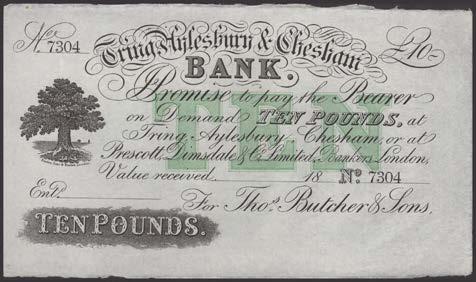 Nº 7304
Tring Aylesbury & Chesham £10-
BANK.
I Promise to pay the Bearer
on Demand TEN POUNDS, at
Tring, Aylesbury, Chesham, or at
Prescott, Dimsdale & Co. Limited, Bankers London,
Value received 18 Nº 7304
Entd. For Thos. Butcher & Sons.
TEN POUNDS.
TEN